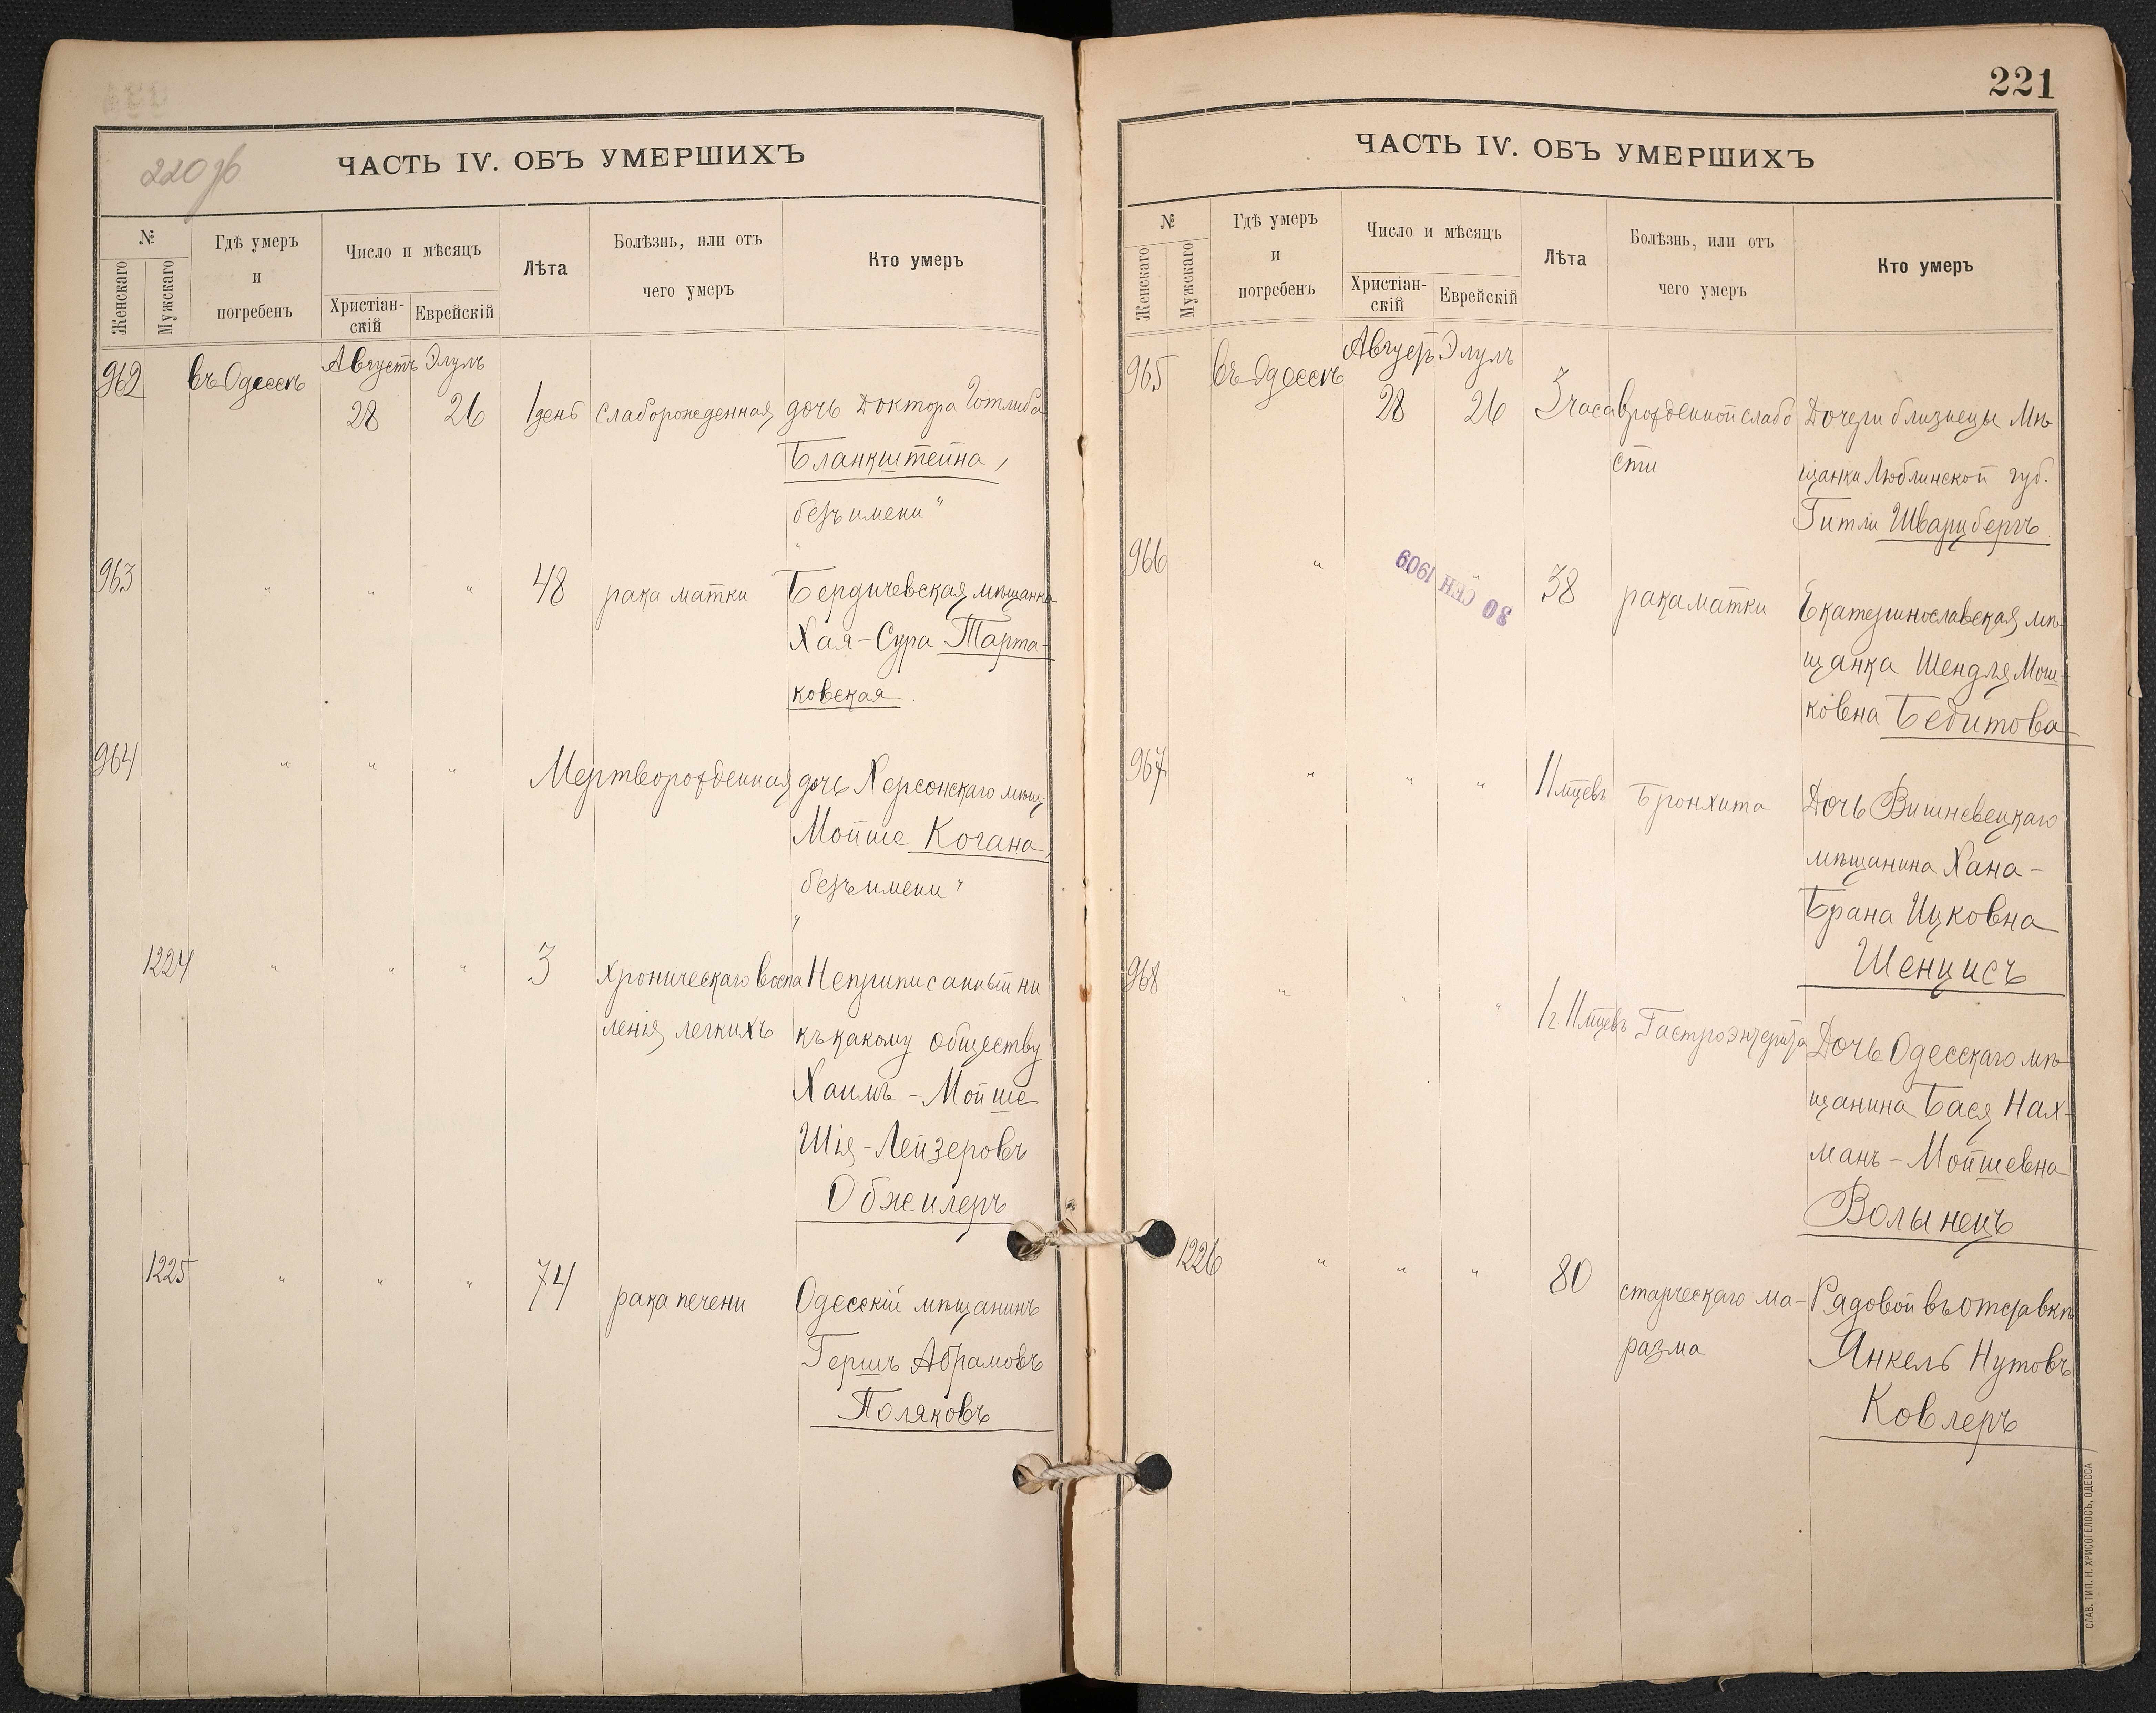 220 об
ЧАСТЬ IV. ОБЪ УМЕРШИХЪ
№
Женскаго
Мужскаго
Гдѣ умеръ
и
погребенъ
Число и мѣсяцъ
Христіан-
скій
Еврейскій
Лѣта
Болѣзнь, или отъ
чего умеръ
Кто умеръ
962 въ Одессѣ Августъ Элулъ
28 26 1 день слаборожденная дочь Доктора Готлиба
Бланкштейна,
безъ имени"
"
963 " " " 48 рака матки Бердичевская мѣщанка
Хая-Сура Тарта-
ковская
964 " " " Мертворожденная дочь Херсонскаго мѣщ.
Мойше Когана,
безъ имени"
"
1224 " " " 3 хроническаго воспа Неприписанный ни
ленія легкихъ къ какому обществу
Хаимъ-Мойше
Шія-Лейзеровъ
Обжилеръ
1225 " " " 74 рака печени Одесскій мѣщанинъ
Гершъ Абрамовъ
Поляковъ
221
ЧАСТЬ IV. ОБЪ УМЕРШИХЪ
№
Женскаго
Мужскаго
Гдѣ умеръ
и
погребенъ
Число и мѣсяцъ
Христіан-
скій
Еврейскій
Лѣта
Болѣзнь, или отъ
чего умеръ
Кто умеръ
965 въ Одессѣ Август Элулъ
28 26 3 часа врожденной слабо Дочери близнецы Мѣ
сти щанки Люблинской губ.
Гитли Шварцбергъ
966 " 30 СЕН 1909 38 рака матки Екатеринославская мѣ-
щанка Шендля Мош-
ковна Бебитова
967 " " " 11 мцевъ Бронхита Дочь Вишневецкаго
мѣщанина Хана-
Брана Ицковна
Шенцисъ
968 " " " 1 г 11 мцевъ Гастроэнтерита Дочь Одесскаго мѣ-
щанина Бася Нах-
манъ-Мойшевна
Волынецъ
1226 " " " 80 старческаго ма- Рядовой въ отставкѣ
разма Янкель Нутовъ
Ковлеръ
СЛАВ. ТИП. Н. ХРИСОГЕЛОСЪ, ОДЕССА